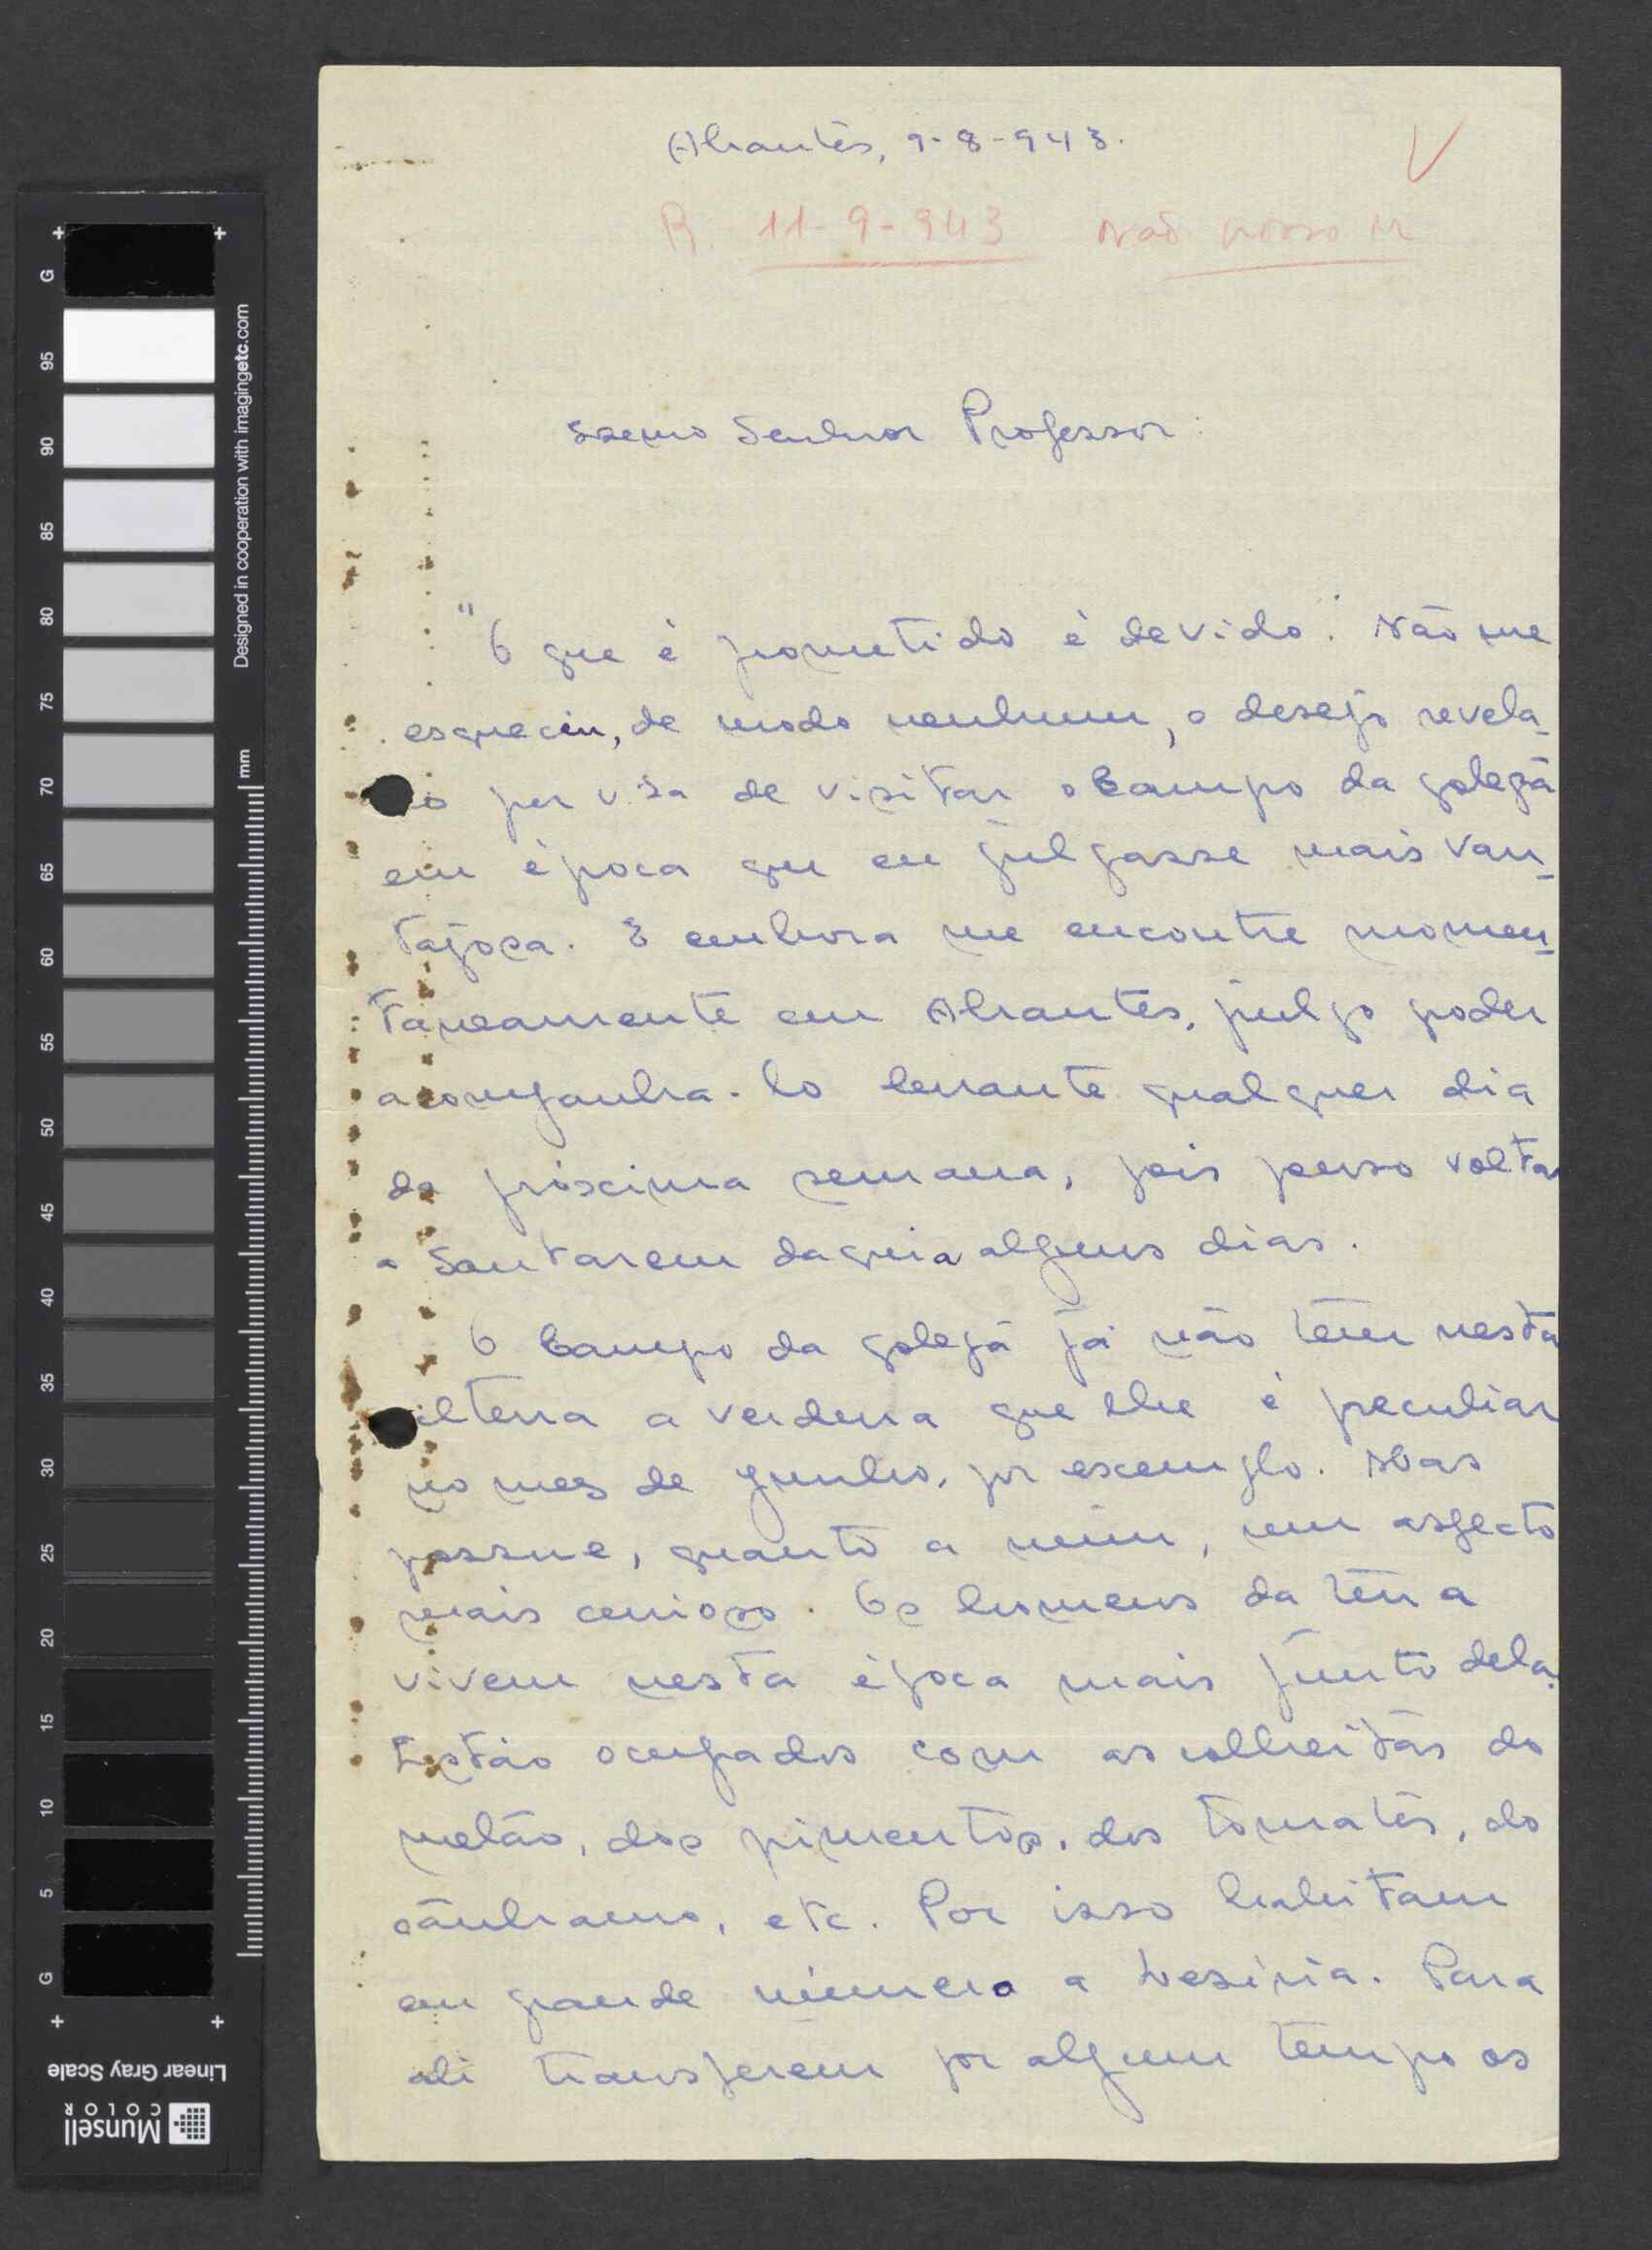 Abrantes, 9-8-943.
V
R. 11-9-943 Não posso ir
Exemo Senhor Professor:
"O que é prometido é devido". Não me
esqueceu, de modo nenhum, o desejo revela-
do por V. Exa de visitar o Campo da Golegã
em época que eu julgasse mais van-
tajosa. E embora me encontre momen-
taneamente em Abrantes, julgo poder
acompanha-lo durante qualquer dia
da próscima semana, pois penso voltar
a Santarem daqui a alguns dias.
O Campo da Golegã já não tem nesta
altura a verdura que lhe é peculiar
no mes de Junho, por escemplo. Mas
possue, quanto a mim, um aspecto
mais curioso. Os homens da terra
vivem nesta época mais junto dela.
Estão ocupados com as colheitas do
melão, dos pimentos, dos tomates, do
cânhamo, etc. Por isso habitam
em grande número a Lesiria. Para
ali transferem por algum tempo os
G
95
90
85
80
75
70
65
60
55
50
45
40
35
30
25
20
15
10
5
G
mm
Designed in cooperation with imagingetc.com
Linear Gray Scale
Munsell
COLOR